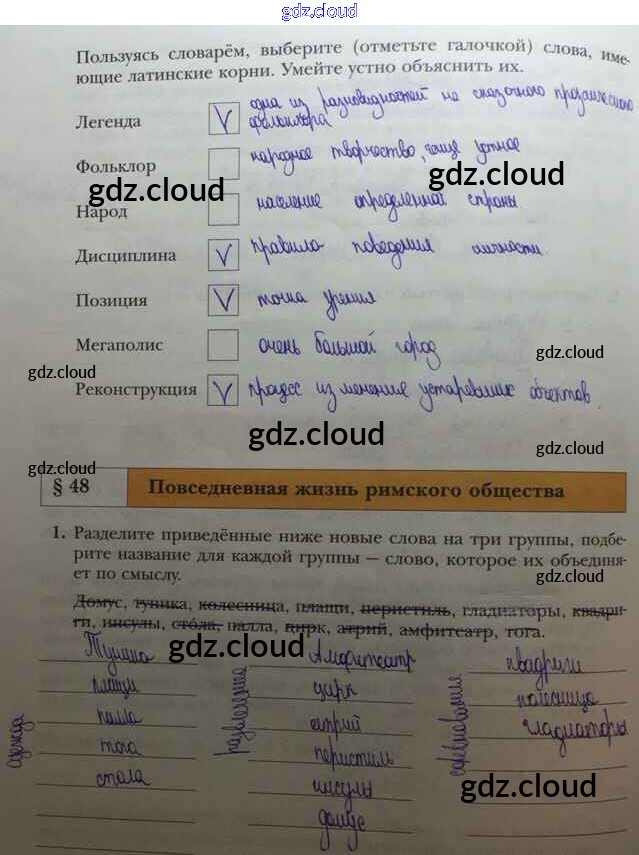 gdz.cloud
Пользуясь словарём, выберите (отметьте галочкой) слова, име-
ющие латинские корни. Умейте устно объяснить их.
одна из разновидностей не сказочного прозаического
Легенда V фольклора
Фольклор народное творчество, чаще устное
gdz.cloud gdz.cloud
Народ население определенной страны
Дисциплина V правило поведения личности.
Позиция V точка зрения
Мегаполис очень большой город
gdz.cloud
gdz.cloud
Реконструкция V процесс изменение устаревших объектов.
gdz.cloud
gdz.cloud
gdz.cloud
§ 48 Повседневная жизнь римского общества
1. Разделите приведённые ниже новые слова на три группы, подбе-
рите название для каждой группы — слово, которое их объединя-
ет по смыслу.
gdz.cloud
Домус, туника, колесница, плащи, перистиль, гладиаторы, квадри-
ги, инсулы, стола, палла, цирк, атрий, амфитеатр, тога.
gdz.cloud
одежда
Туника
плащи
палла
тога
стола
развлечение
Амфитеатр
цирк
атрий
перистиль
инсулы
домус
соревнования
квадриги
колесница
гладиаторы
gdz.cloud
gdz.cloud